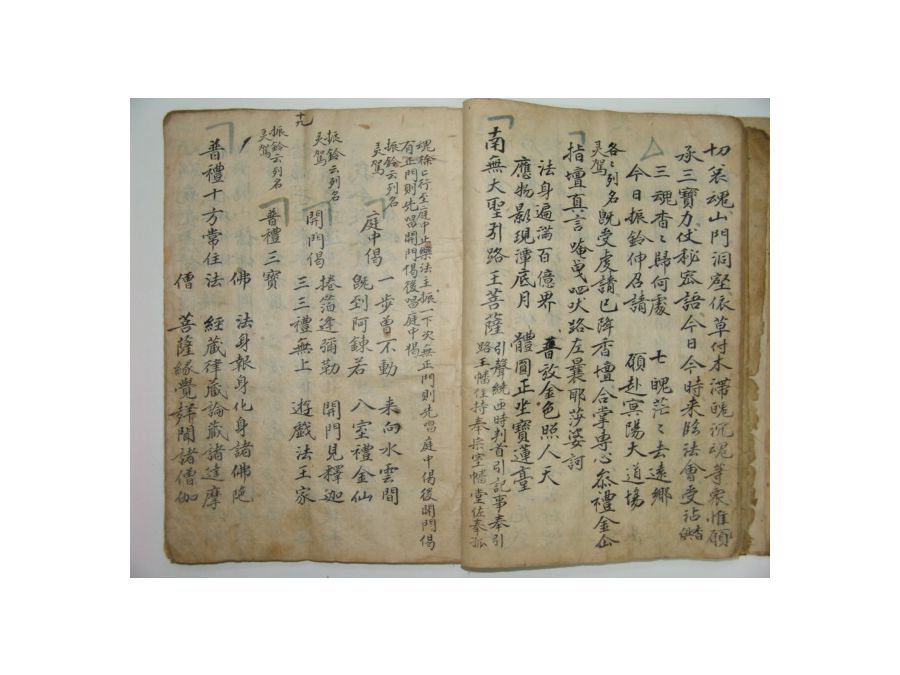 切哀魂山門洞壑依草付木滯魄沉魂等衆惟願
承三寶力仗秘密語今日今時来臨法會受沾香供
三魂杳〻歸何處 七魄茫〻去遠鄉
今日振鈴伸召請 願赴冥陽大道場
各〻列名既受虔請已降香壇合掌専心叅禮金仙
灵駕
指壇真言 唵曳呬吠路左曩耶莎婆訶
法身遍滿百億界 普放金色照人天
應物影現潭底月 體圓正坐寶蓮臺
南無大聖引路王菩薩 引聲統
路王幡住持奉
魂徐〻行至庭中止樂法主振一下次無正門則先唱庭中偈後開門偈
有正門則先唱開門偈後唱庭中偈
振鈴云列名
灵駕
庭中偈 一步曾不動 来向水雲間
既到阿鍊若 入室禮金仙
振鈴云列名
灵駕
開門偈 捲箔逢彌勒 開門見釋迦
三三禮無上 遊戲法王家
十九
振鈴云列名
灵駕
普禮三寶
佛 法身報身化身諸佛陁
普禮十方常住法 經藏律藏論藏諸達摩
僧 菩薩緣覺聲聞諸僧伽